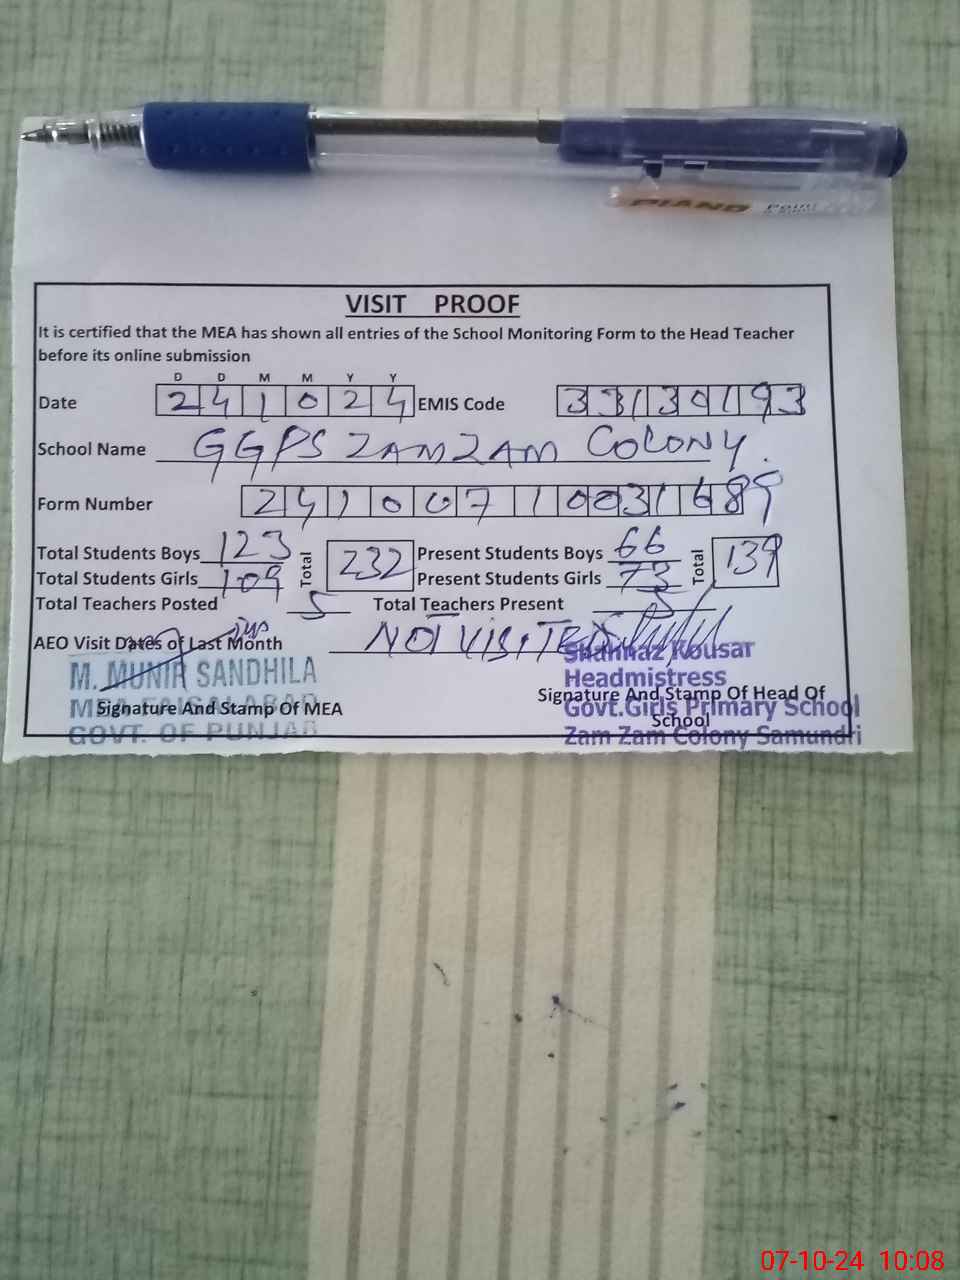 PIANO Point
VISIT PROOF
It is certified that the MEA has shown all entries of the School Monitoring Form to the Head Teacher
before its online submission
D D M M Y Y
Date 2 4 1 0 2 4 EMIS Code 3 3 1 3 0 1 9 3
School Name GGPS ZAMZAM COLONY.
Form Number 2 4 1 0 0 7 1 0 0 3 1 6 8 9
Total Students Boys 123 Total 232 Present Students Boys 66 Total 139
Total Students Girls 109 Present Students Girls 73
Total Teachers Posted 5 Total Teachers Present 5
AEO Visit Dates of Last Month NOT VISITED
M. MUNIR SANDHILA
MEA FAISALABAD
Signature And Stamp Of MEA
GOVT. OF PUNJAB
Shahnaz Kousar
Headmistress
Signature And Stamp Of Head Of
School
Govt.Girls Primary School
Zam Zam Colony Samundri
07-10-24 10:08